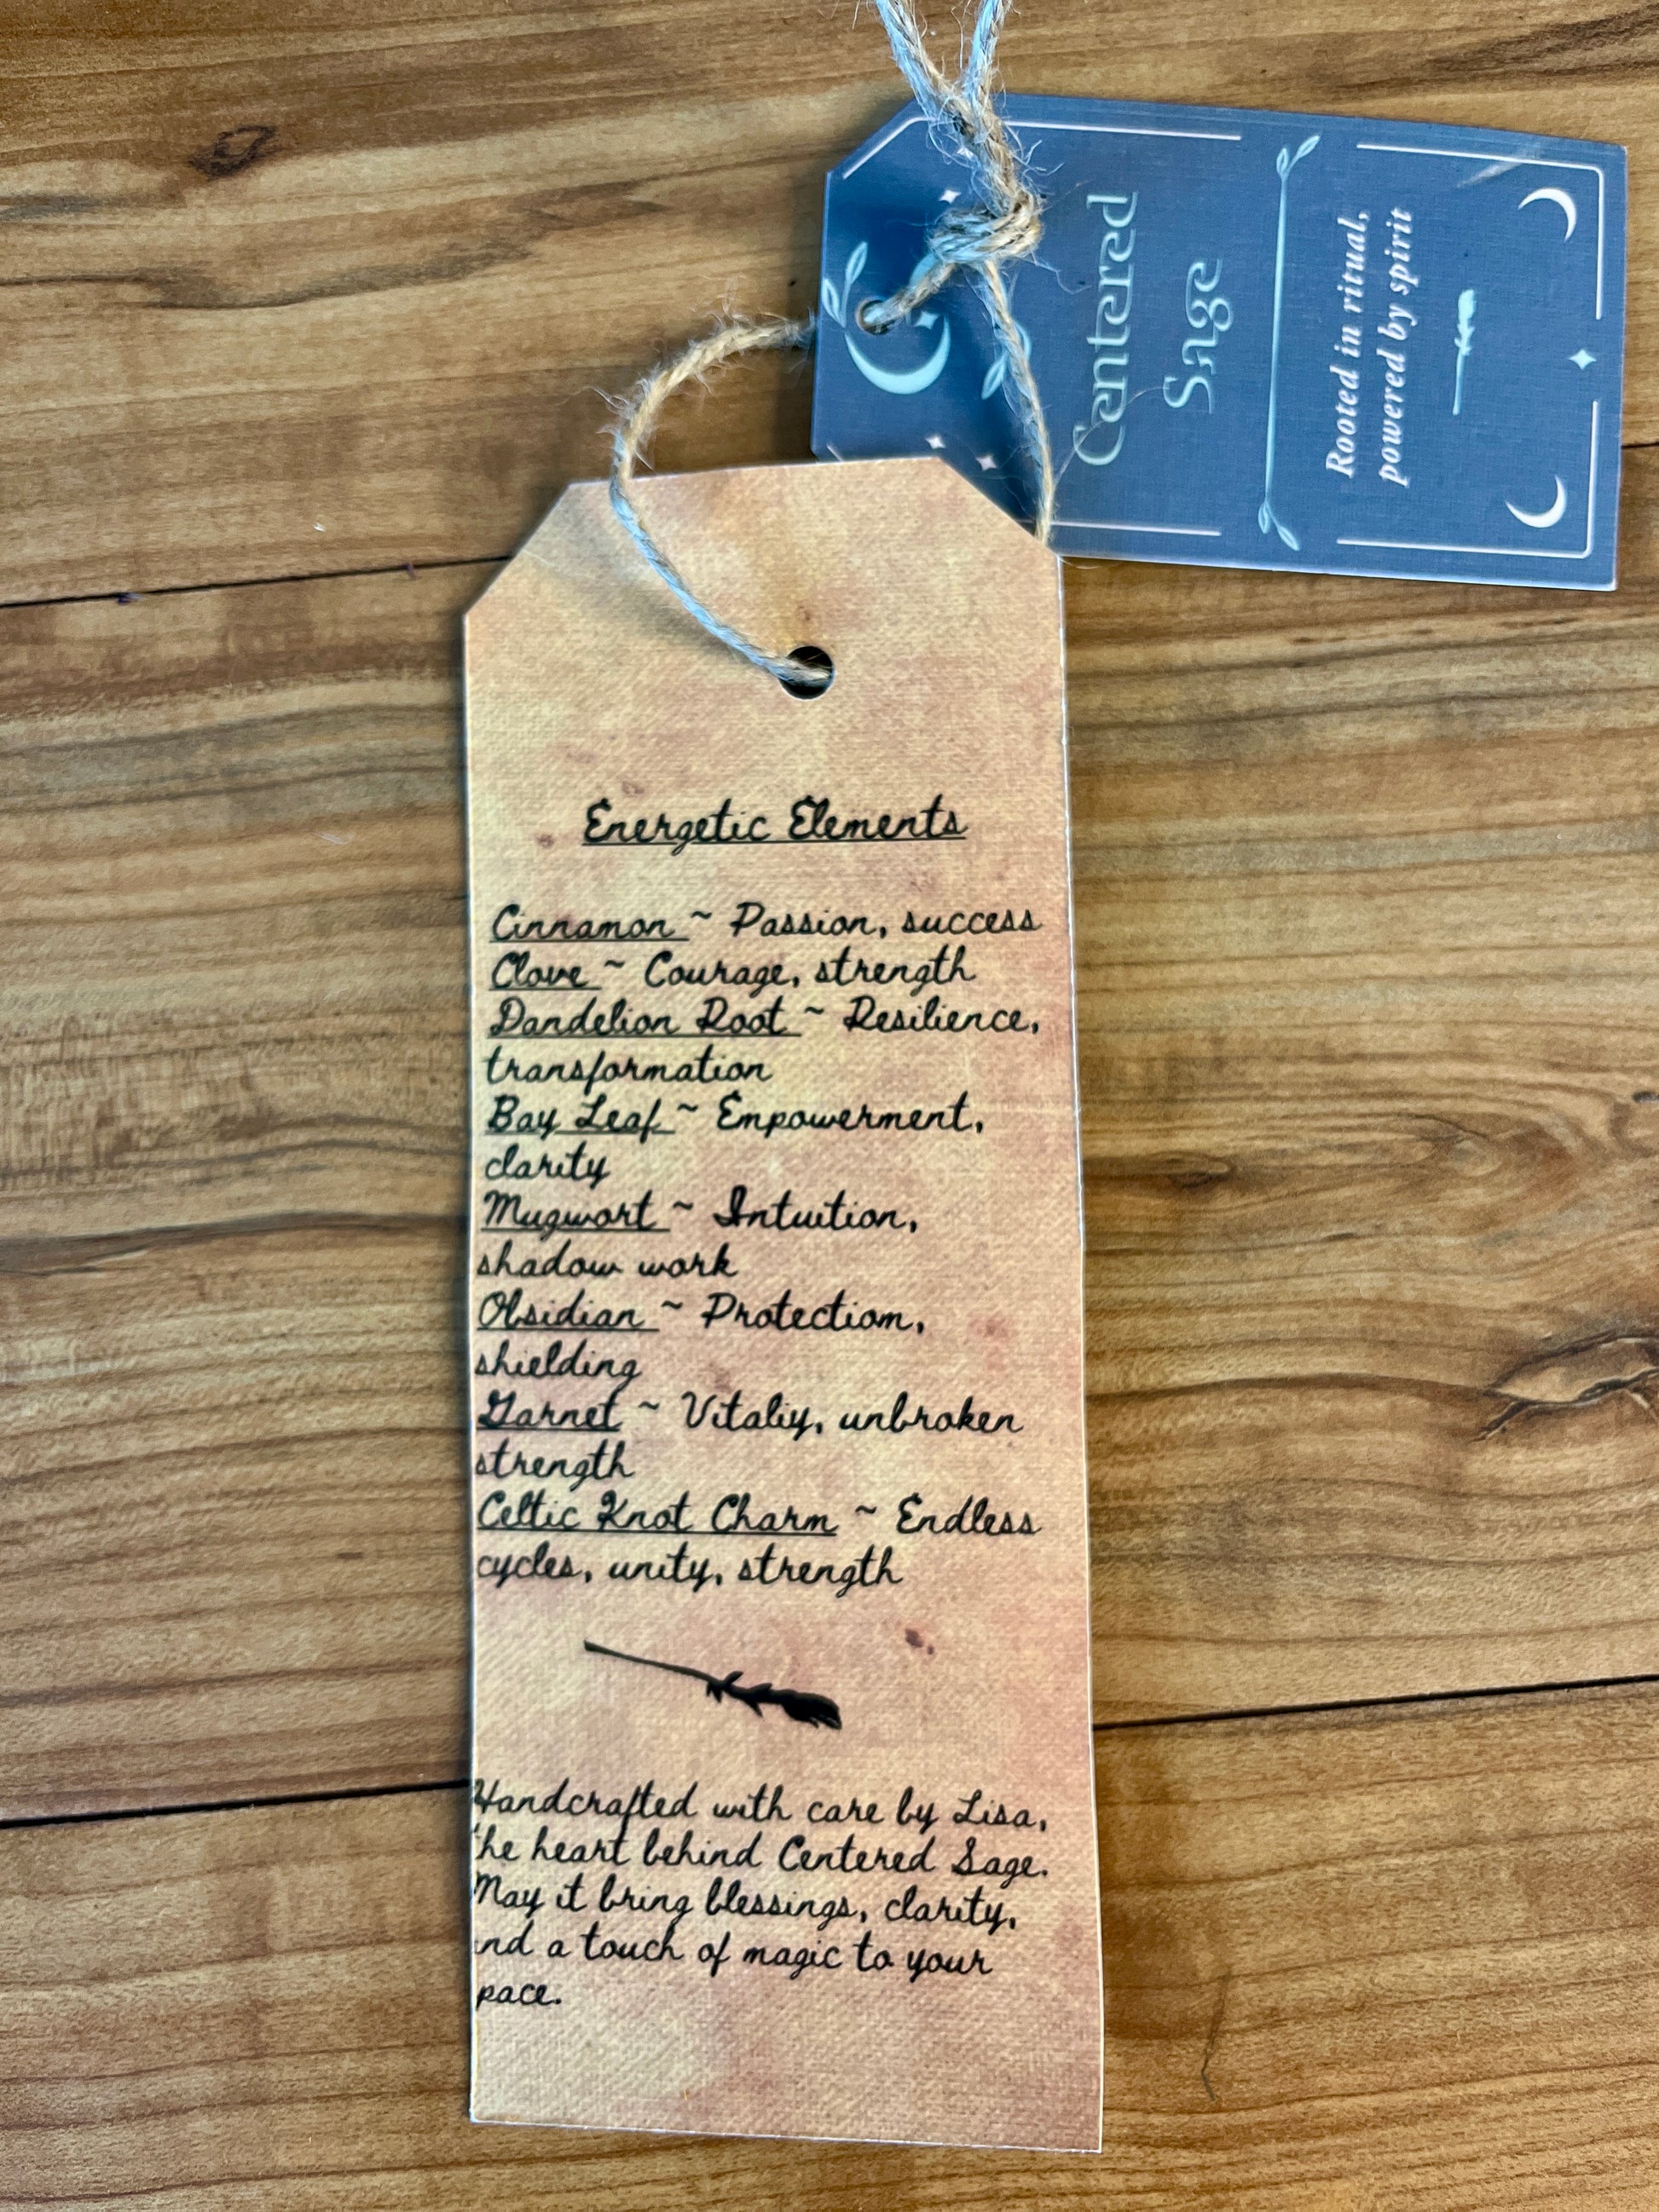 Centered
Sage
Rooted in ritual,
powered by spirit
Energetic Elements
Cinnamon ~ Passion, success
Clove ~ Courage, strength
Dandelion Root ~ Resilience,
transformation
Bay Leaf ~ Empowerment,
clarity
Mugwort ~ Intuition,
shadow work
Obsidian ~ Protectiom,
shielding
Garnet ~ Vitaliy, unbroken
strength
Celtic Knot Charm ~ Endless
cycles, unity, strength
Handcrafted with care by Lisa,
he heart behind Centered Sage.
May it bring blessings, clarity,
nd a touch of magic to your
pace.